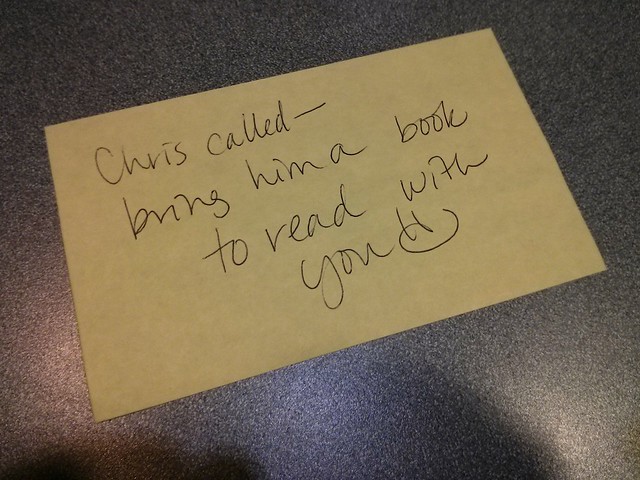 Chris called—
bring him a book
to read with
you